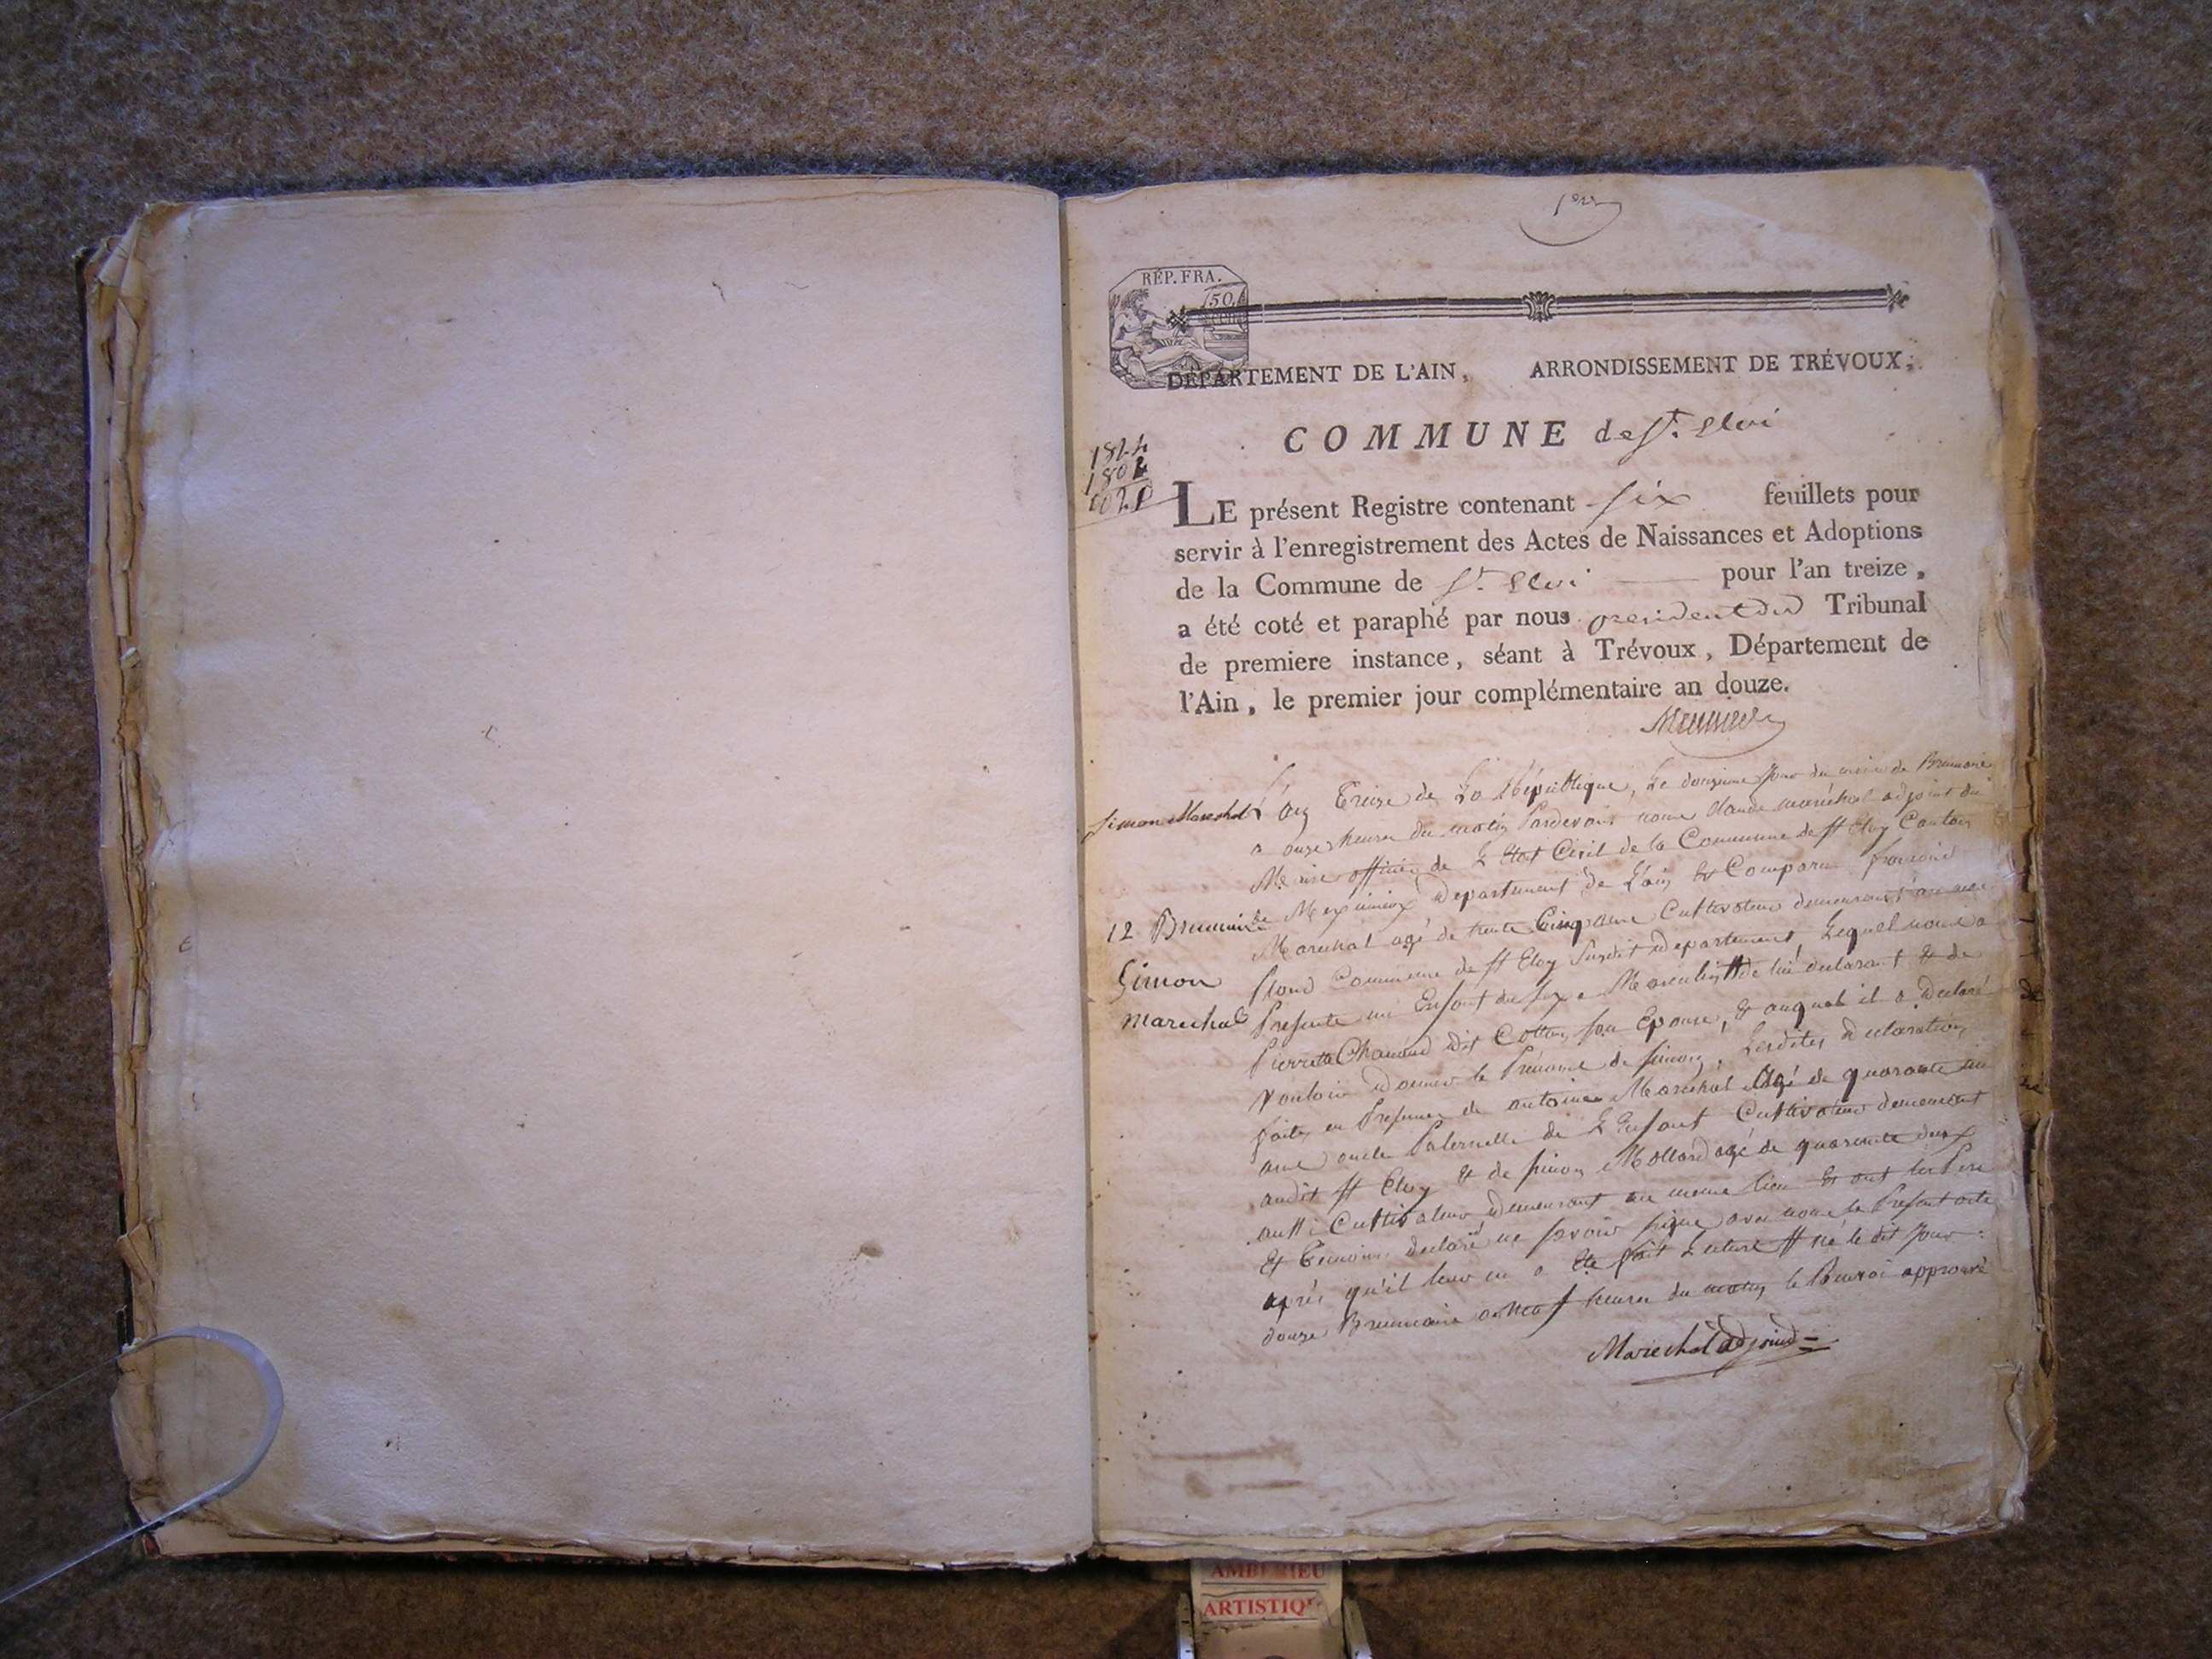 1er
RÉP. FRA.
50
DÉPARTEMENT DE L'AIN, ARRONDISSEMENT DE TRÉVOUX,
COMMUNE de St. Eloi
1824
1802
LE présent Registre contenant six feuillets pour
servir à l'enregistrement des Actes de Naissances et Adoptions
de la Commune de St. Eloi pour l'an treize,
a été coté et paraphé par nous president du Tribunal
de premiere instance, séant à Trévoux, Département de
l'Ain, le premier jour complémentaire an douze.
Simon Marechal
12 Brumaire
Simon
marechal
L'an Treize de La République, Le douzieme Jour du mois de Brumaire
a onze heures du matin Pardevant nous Claude maréchal adjoint du
Maire officier de L'Etat Civil de la Commune de St Eloy Canton
de Meximieux Departement de L'ain Est Comparu francois
Marechal agé de trente Cinq ans Cultivateur demeurant
Commune de St Eloy Susdit departement, Lequel nous a
Presenté un Enfant du sexe Masculin de lui declarant & de
Pierrette Chanaud dit Cotton son Epouse, & auquel il a declaré
Vouloir donner le Prénome de simon, Lesdites declaration
faites en Presence de antoine Marechal Agé de quarante un
ans oncle Paternelle de L'Enfant Cultivateur demeurant
audit St Eloy & de simon Mollard agé de quarante deux
aussi Cultivateur demeurant au meme lieu Et ont les Pere
Et temoins declaré ne savoir signe avec nous le Present acte
après qu'il leur en a Ete fait Lecture né le dit jour
douze Brumaire a heures du matin le Renvoi approuvé
Marechal adjoind
AMBERIEU
ARTISTIQUE